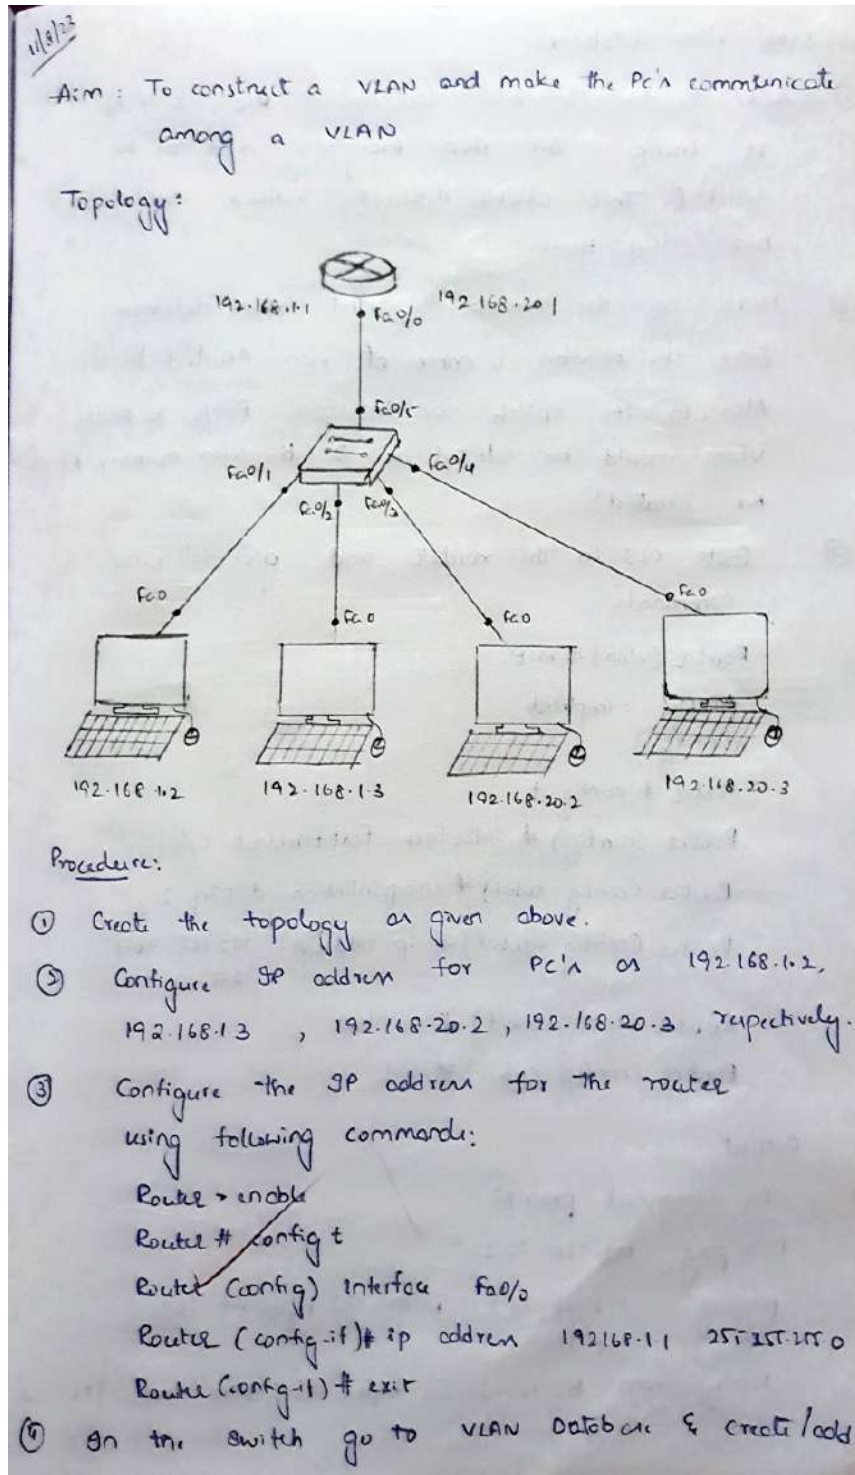 11/8/23
Aim: To construct a VLAN and make the Pc's communicate
among a VLAN
Topology:
192.168.1.1 192.168.20.1
Fa0/0
Fa0/5
Fa0/1 Fa0/2 Fa0/3 Fa0/4
Fa0 Fa0 Fa0 Fa0
192.168.1.2 192.168.1.3 192.168.20.2 192.168.20.3
Procedure:
① Create the topology as given above.
② Configure IP address for PC's as 192.168.1.2,
192.168.1.3 , 192.168.20.2 , 192.168.20.3 , respectively.
③ Configure the IP address for the router
using following commands:
Router > enable
Router # config t
Router (config) interface fa0/0
Router (config-if)# ip address 192.168.1.1 255.255.255.0
Router (config-if) # exit
④ In the switch go to VLAN Database & create/add